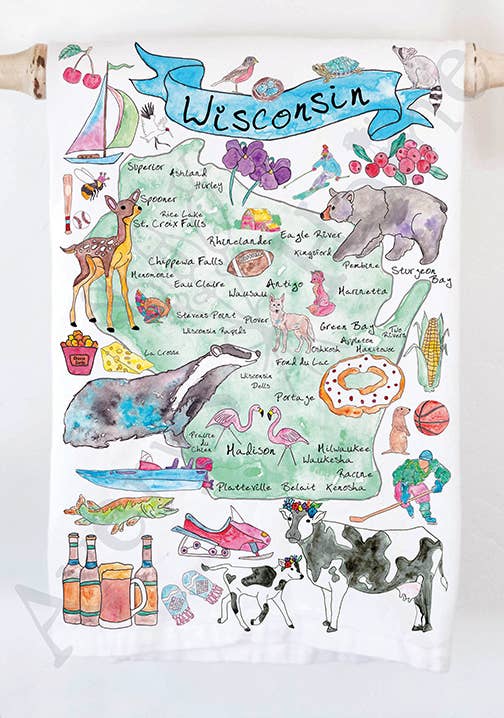 Wisconsin
Superior
Ashland
Hurley
Spooner
Rice Lake
St. Croix Falls
Rhinelander
Eagle River
Kingsford
Chippewa Falls
Pembine
Sturgeon
Bay
Menomonie
Eau Claire
Wausau
Antigo
Marinette
Stevens Point
Plover
Green Bay
Two
Rivers
Wisconsin Rapids
Appleton
Manitowoc
Oshkosh
La Crosse
Fond du Lac
Wisconsin
Dells
Portage
Prairie
du
Chien
Madison
Milwaukee
Waukesha
Racine
Platteville
Beloit
Kenosha